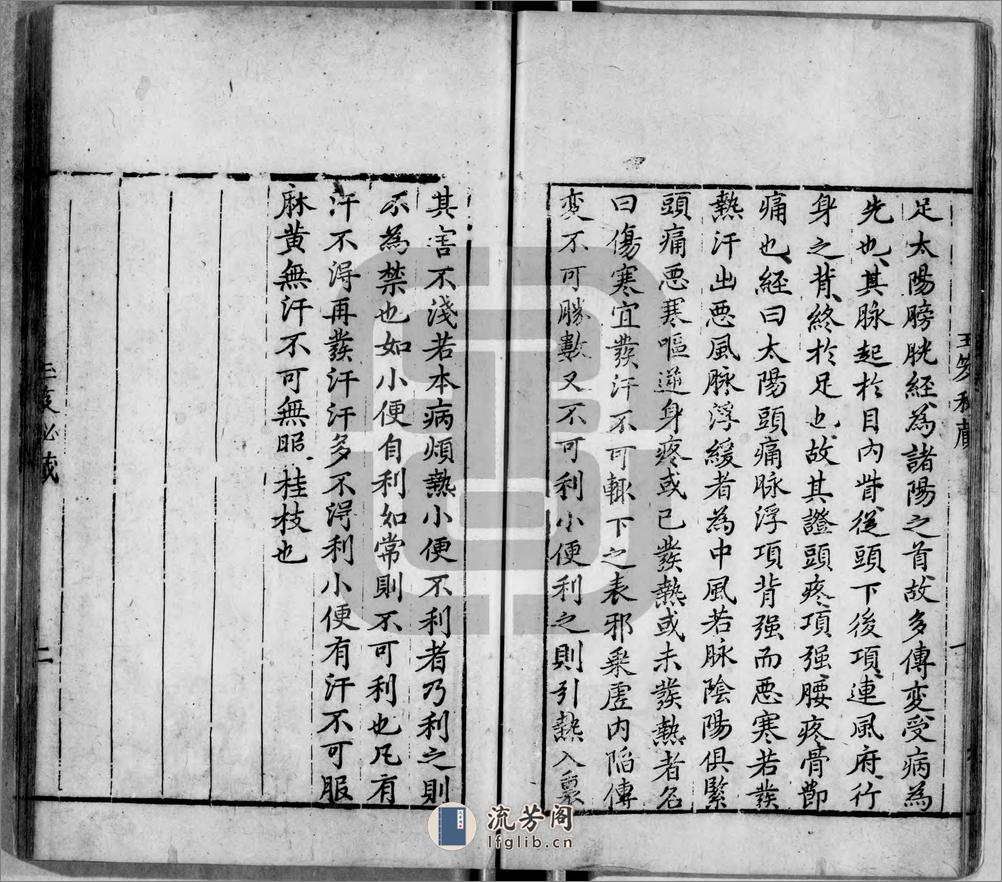 足太陽膀胱經為諸陽之首故多傳変受病為
先也其脉起於目內眥從頭下後項連風府行
身之背終於足也故其證頭疼項强腰疼骨節
痛也經曰太陽頭痛脉浮項背强而惡寒若發
熱汗出惡風脉浮緩者為中風若脉陰陽俱緊
頭痛惡寒嘔逆身疼或已發熱或未發熱者名
曰傷寒宜發汗不可輒下之表邪乘虛內陷傳
変不可勝數又不可利小便利之則引熱入裏
其害不淺若本病煩熱小便不利者乃利之則
不為禁也如小便自利如常則不可利也凡有
汗不得再發汗汗多不得利小便有汗不可服
麻黃無汗不可無服桂枝也
二
流芳阁
lfglib.cn